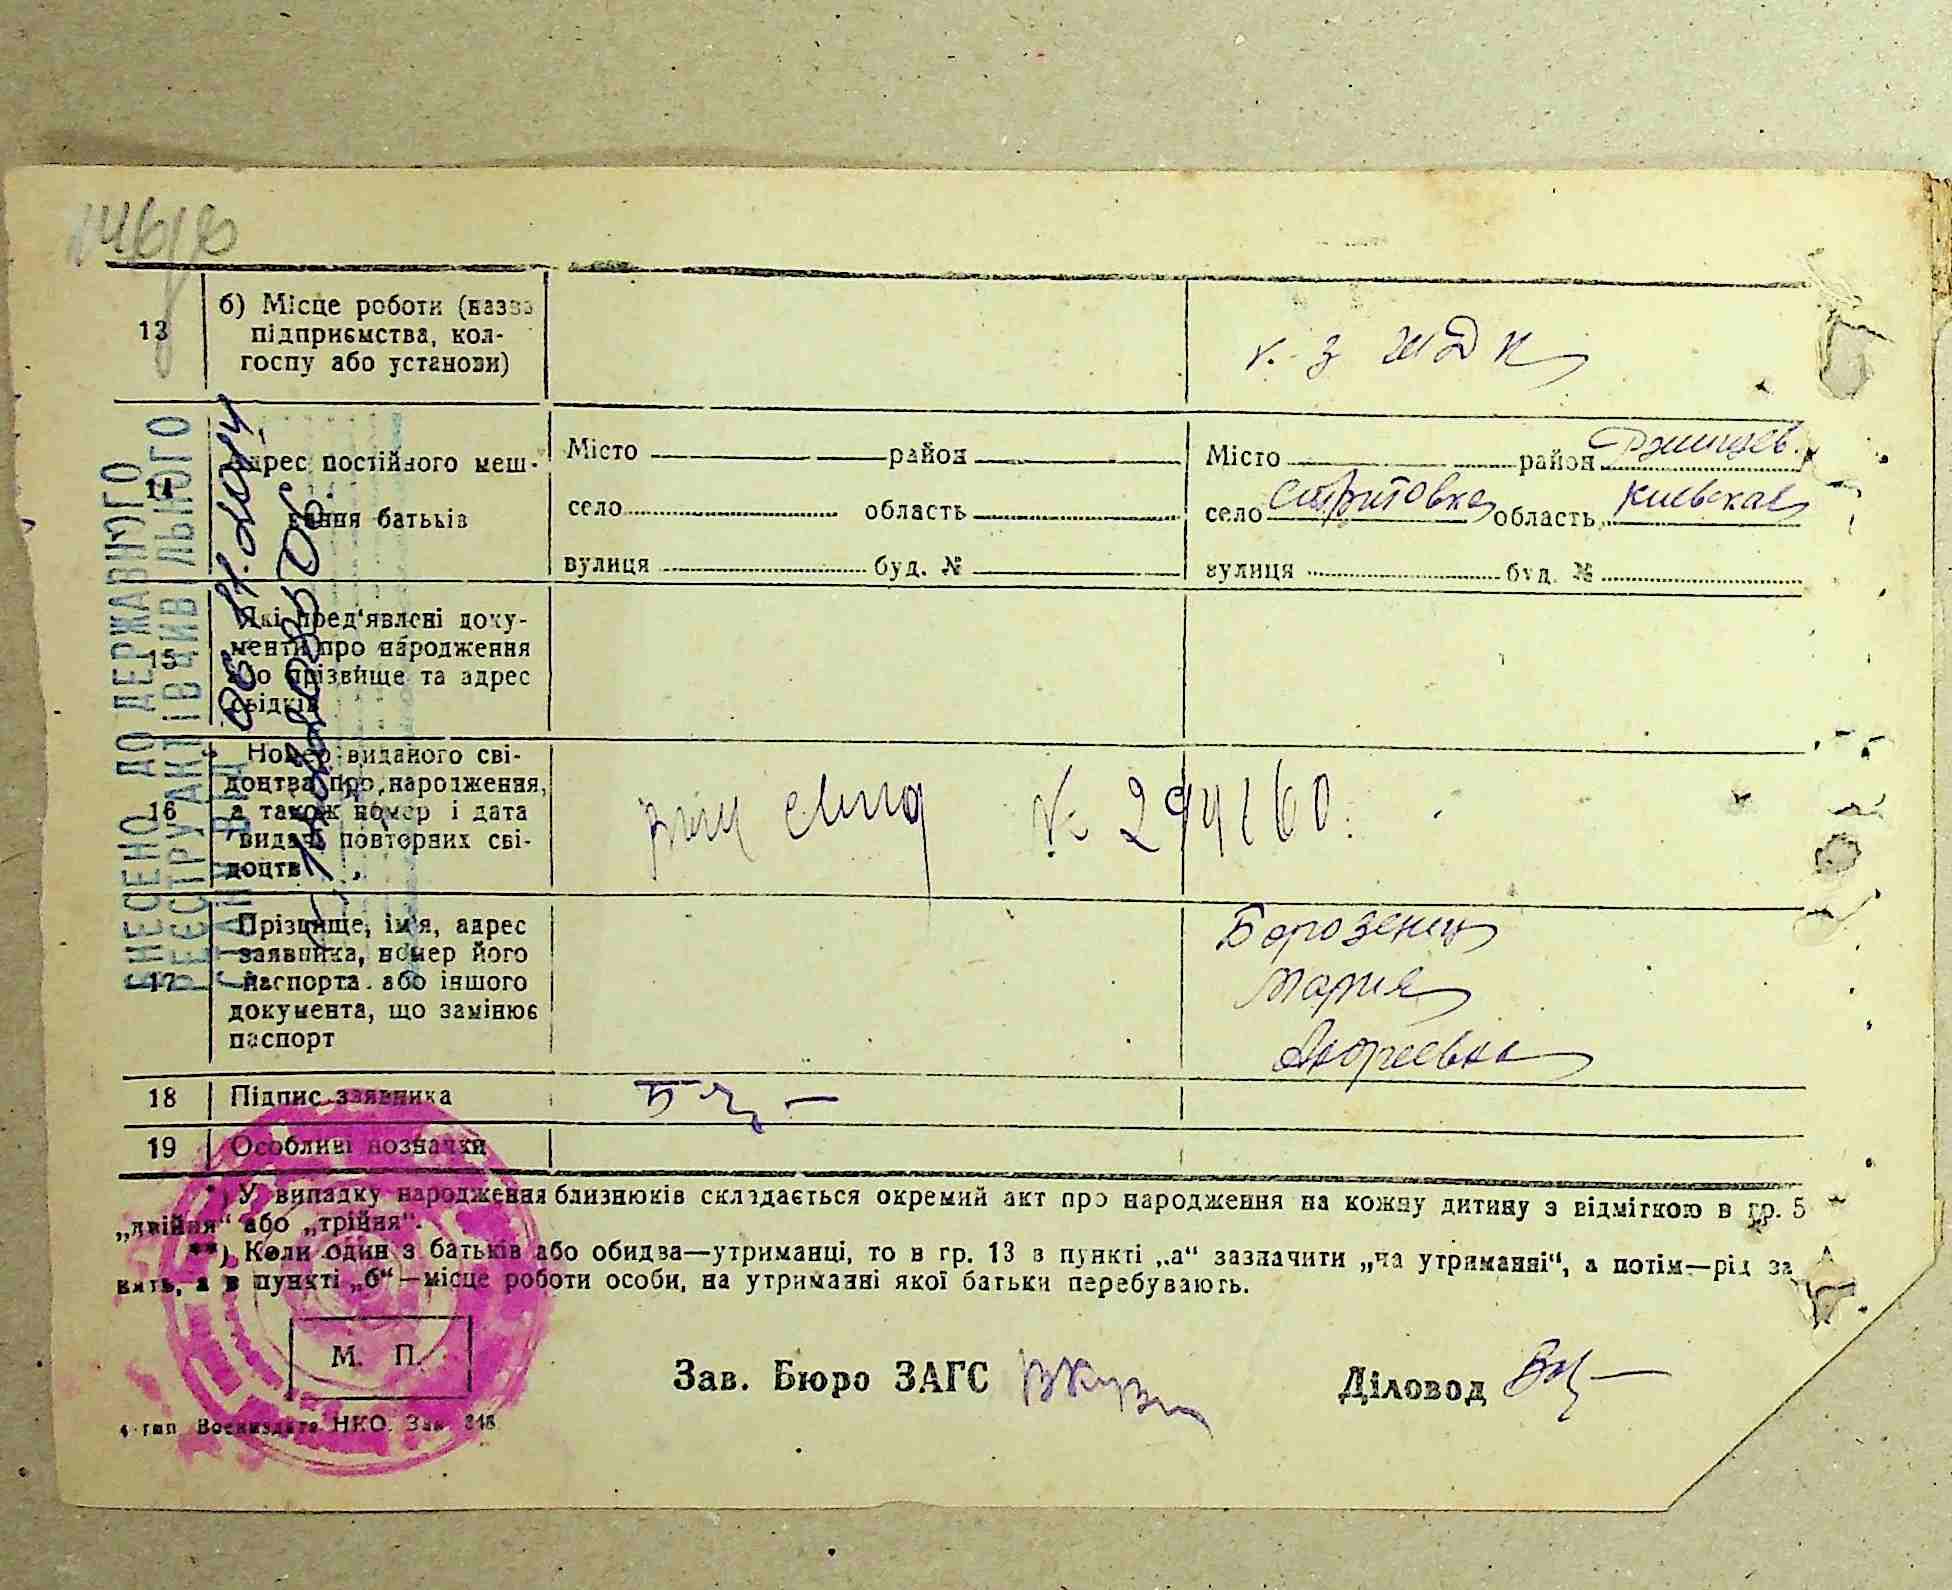 13
б) Місце роботи (назва
підприємства, кол-
госпу або установи)
14
Адрес постійного меш-
кання батьків
Місто район
село область
вулиця буд. №
Місто район Ржищев.
село область Киевская
вулиця буд. №
15
Які пред'явлені доку-
менти про народження
або прізвище та адрес
свідків
16
Номер виданого сві-
доцтва про народження,
а також номер і дата
видачі повторних сві-
доцтв
№ 294160.
17
Прізвище, ім'я, адрес
заявника, номер його
паспорта або іншого
документа, що замінює
паспорт
Борозенец
Мария
Андреевна
18 Підпис заявника
19 Особливі позначки
*) У випадку народження близнюків складається окремий акт про народження на кожну дитину з відміткою в гр. 5
„двійня“ або „трійня“.
**) Коли один з батьків або обидва—утриманці, то в гр. 13 в пункті „а“ зазначити „на утриманні“, а потім—рід за
нять, а в пункті „б“—місце роботи особи, на утриманні якої батьки перебувають.
М. П.
Зав. Бюро ЗАГС
Діловод
4 тип Воениздата НКО. Зак 348
ВНЕСЕНО ДО ДЕРЖАВНОГО
РЕЄСТРУ АКТІВ ЦИВІЛЬНОГО
СТАНУ